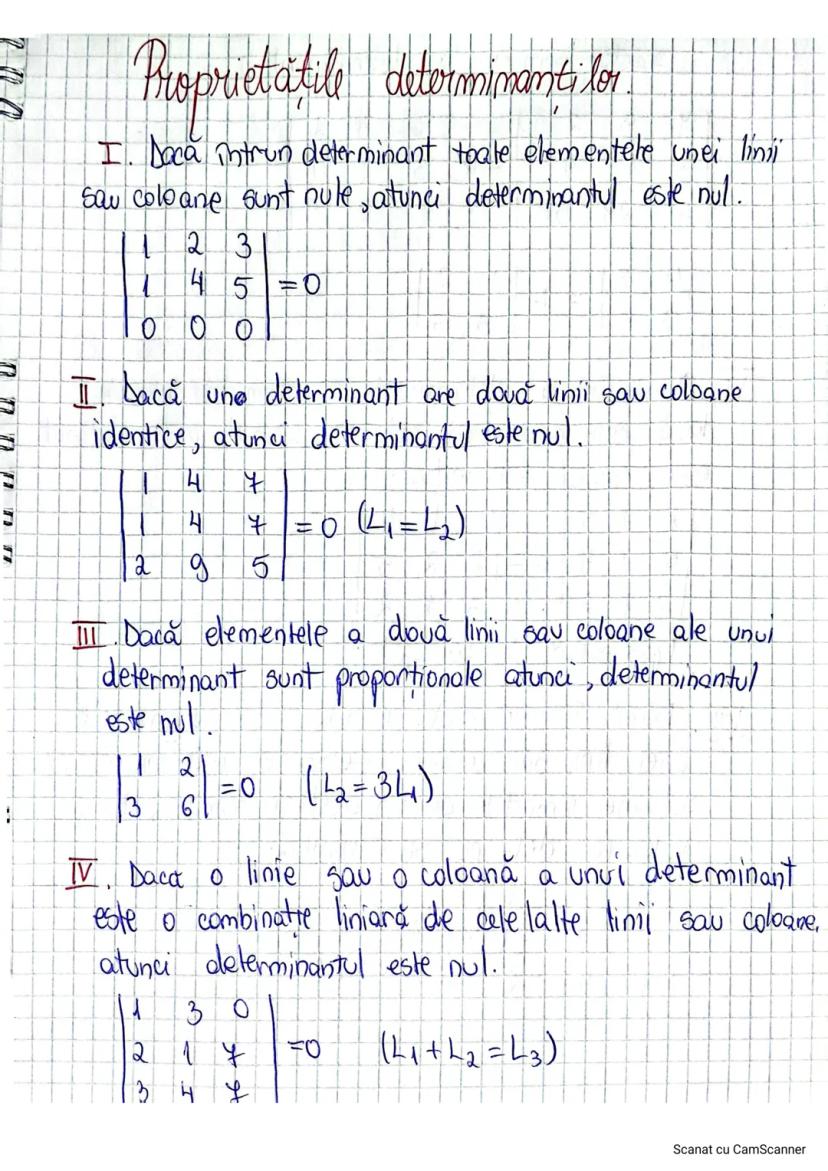 Proprietățile determinanților.
I. Dacă într-un determinant toate elementele unei linii
sau coloane sunt nule, atunci determinantul este nul.
| 1 2 3 |
| 1 4 5 | = 0
| 0 0 0 |
II. Dacă un determinant are două linii sau coloane
identice, atunci determinantul este nul.
| 1 4 7 |
| 1 4 7 | = 0 (L₁ = L₂)
| 2 9 5 |
III. Dacă elementele a două linii sau coloane ale unui
determinant sunt proporționale atunci, determinantul
este nul.
| 1 2 |
| 3 6 | = 0 (L₂ = 3L₁)
IV. Daca o linie sau o coloană a unui determinant
este o combinație liniară de celelalte linii sau coloane,
atunci determinantul este nul.
| 1 3 0 |
| 2 1 7 | = 0 (L₁ + L₂ = L₃)
| 3 4 7 |
Scanat cu CamScanner